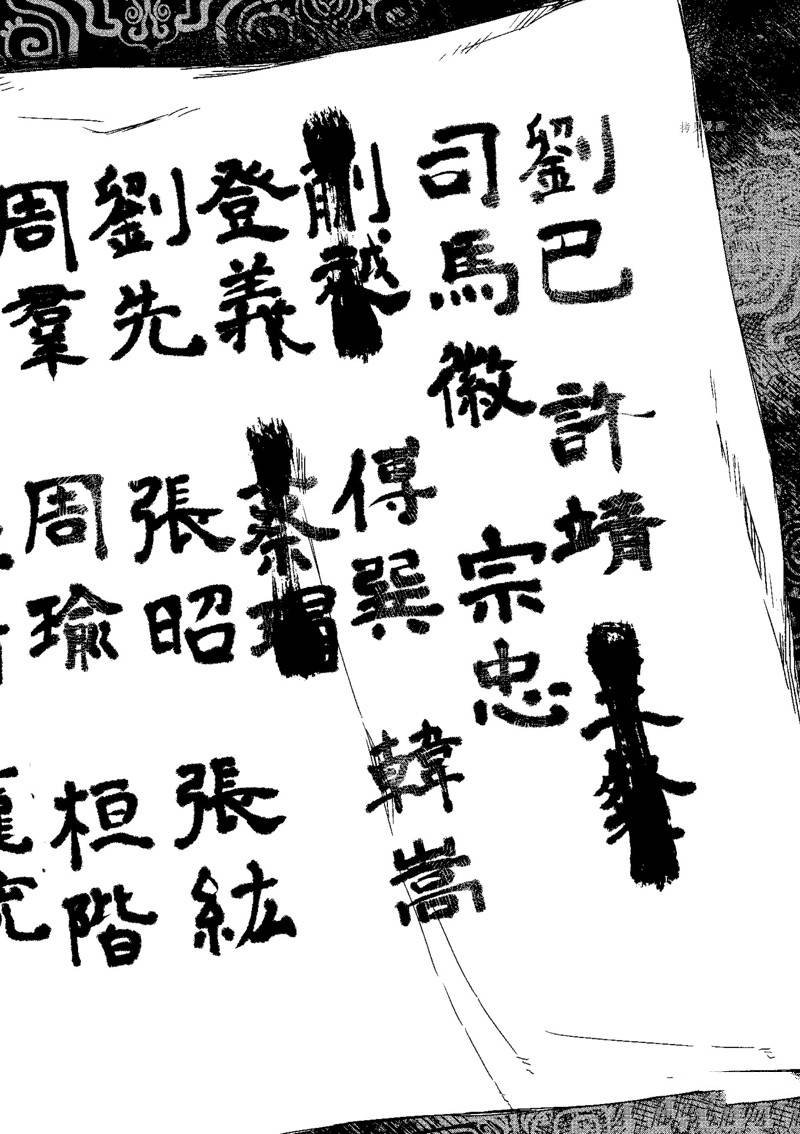 劉巴
許靖
司馬徽
宗忠
蒯越
傅巽
韓嵩
登羲
蔡瑁
劉先
張昭
張紘
周羣
周瑜
桓階
拷贝漫画